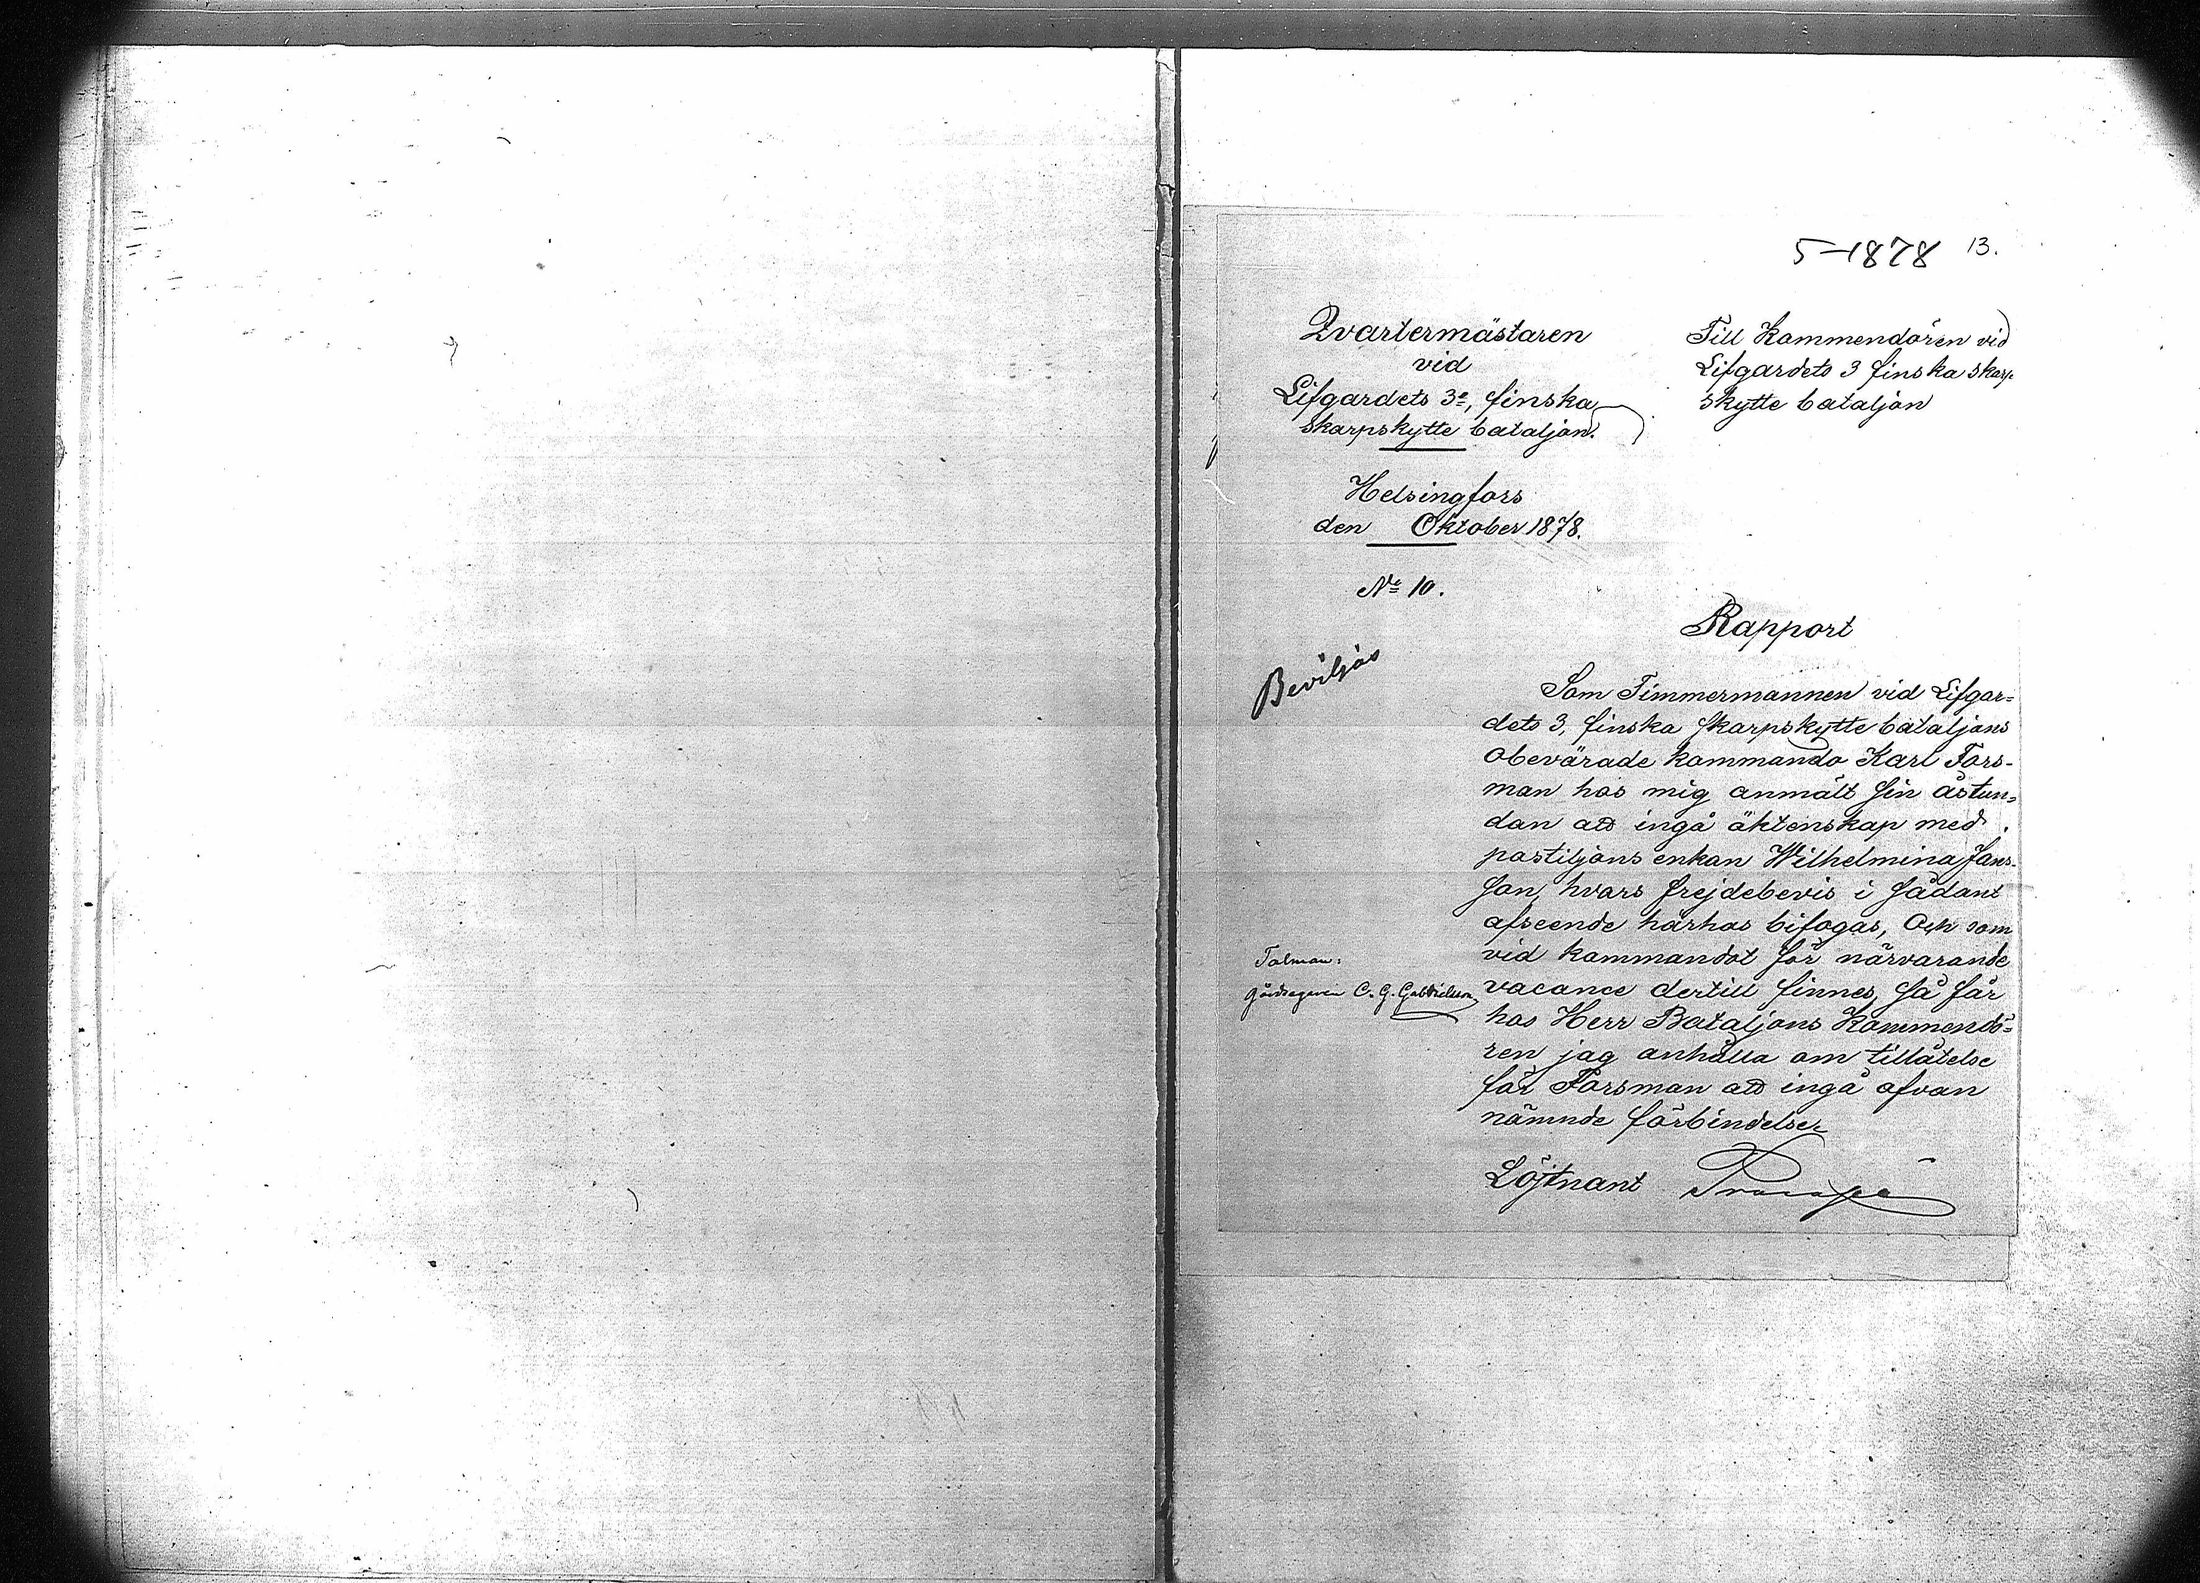 5-1878 13.
Qvartermästaren
vid
Lifgardets 3e, finska
skarpskytte bataljon.
Helsingfors
den Oktober 1878.
No 10.
Till Kommendören vid
Lifgardets 3 finska skarp-
skytte bataljon
Rapport
Beviljas
Som Timmermannen vid Lifgar=
dets 3, finska skarpskytte bataljons
obevärade kommando Karl Fors-
man hos mig anmält sin åstun=
dan att ingå äktenskap med
postiljons enkan Wilhelmina Jans-
son, hvars frejdebevis i sådant
afseende härhos bifogas, Och som
vid kommandot för närvarande
vacance dertill finnes, så får
hos Herr Bataljons Kommendö=
ren jag anhålla om tillåtelse
för Forsman att ingå ofvan
nämnde förbindelse.
Talman:
gårdsegaren C. G. Gabrielsson
Löjtnant